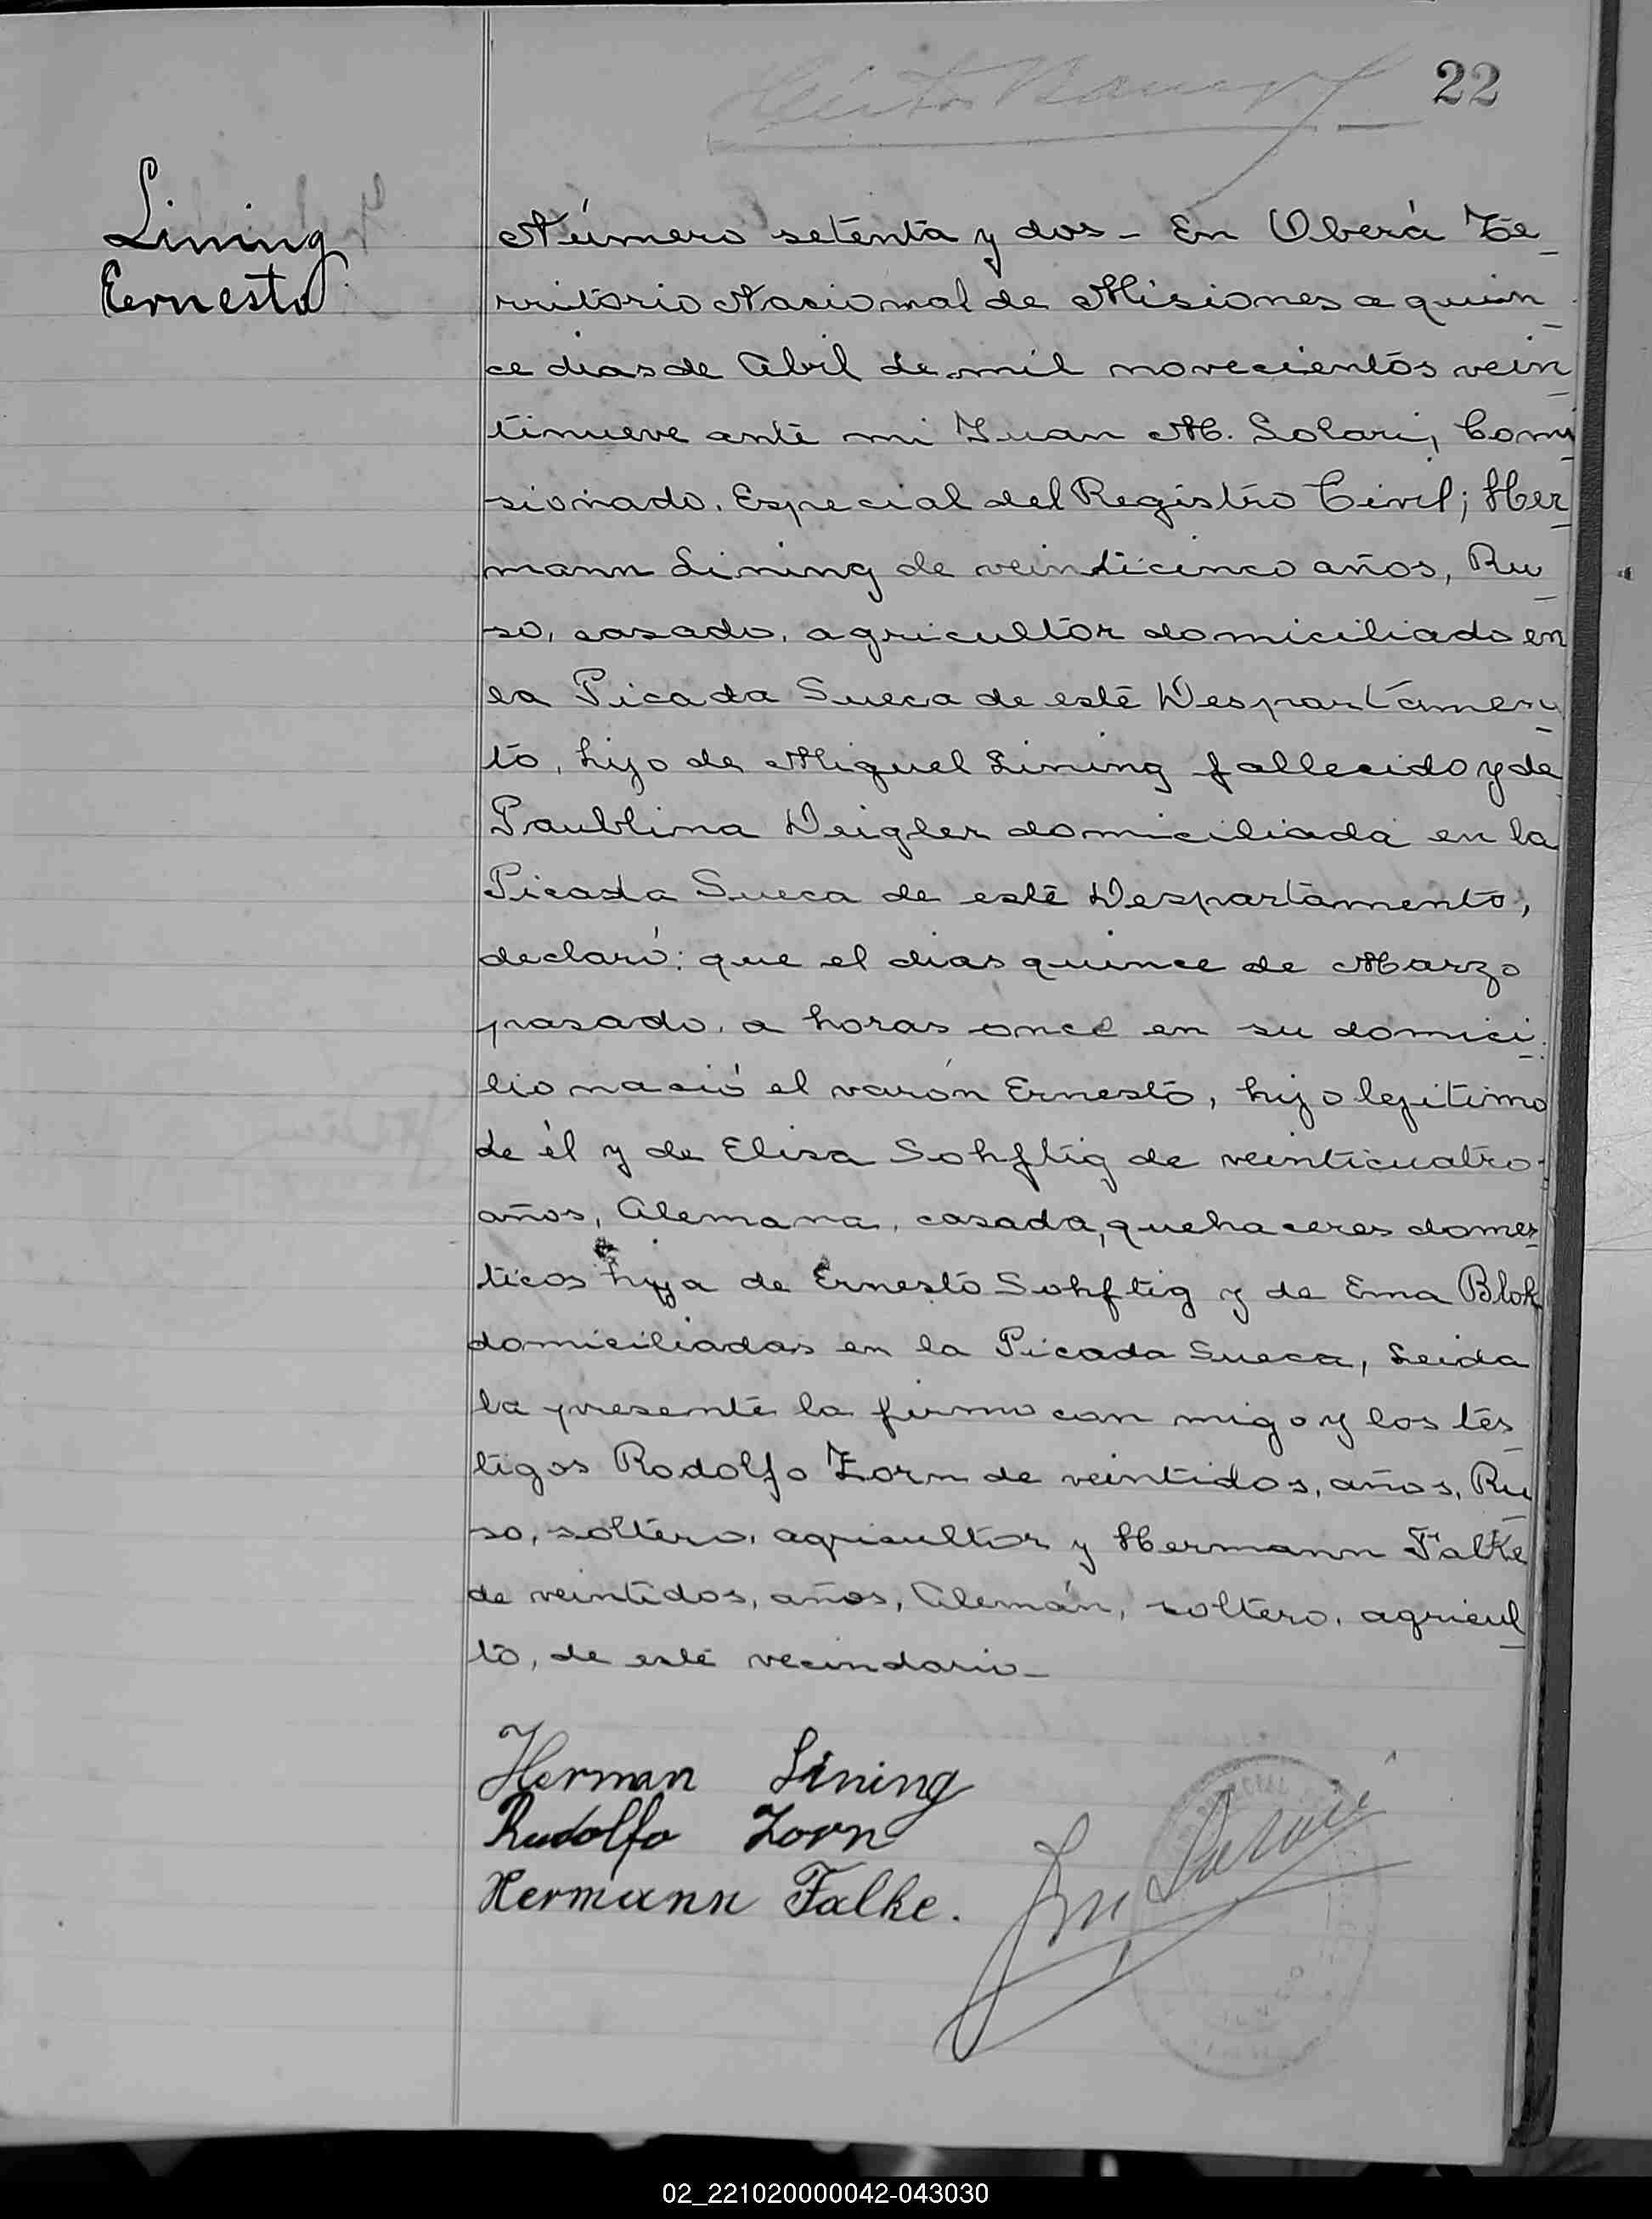 22
Lining
Eernesto
Número setenta y dos - En Oberá Te-
rritorio Nacional de Misiones a quin-
ce dias de Abril de mil novecientos vein-
tinueve ante mi Juan M. Solari, Comi-
sionado. Especial del Registro Civil; Her-
mann Lining de veinticinco años, Ru-
so, casado, agricultor domiciliado en
la Picada Sueca de este Despartamen-
to, hijo de Miguel Lining fallecido y de
Paublina Deigler domiciliada en la
Picada Sueca de este Despartamento,
declaró: que el dias quince de Marzo
pasado. a horas once en su domici-
lio nació el varón Ernesto, hijo legitimo
de él y de Elisa Sohftig de veinticuatro
años, Alemana, casada, quehaceres domes-
ticos hija de Ernesto Sohftig y de Ema Blok
domiciliadas en la Picada Sueca, Leida
la presente la firmo con migo y los tes-
tigos Rodolfo Zorn de veintidos, años, Ru-
so, soltero, agricultor y Hermann Falke
de veintidos, años, Alemán, soltero, agricul-
to, de este vecindario-
Herman Lining
Rudolfo Zorn
Hermann Falke.
02_221020000042-043030